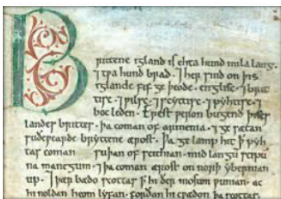 Brittene igland is ehta hund mila lang.
⁊ tƿa hund brad. ⁊ her sind on þis
iglande fif geþeode. englisc. ⁊ brit
tisc. ⁊ ⁊ scyttisc. ⁊ pyhtisc. ⁊
boc leden. Erest ƿeron bugend þises
landes brittes. þa coman of armenia. ⁊ ge sætan
suðeƿearde bryttene ærost. Þa gelamp hit þ pyh
tas coman suþan of scithian. mid langū scipū
na manegum. ⁊ þa coman ærost on norþ ybernian
up. ⁊ þær bædo scottas þ hi ðer moston ƿunian. ac
hi noldan heom lyfan. forðan hi cƿædon þa scottas.